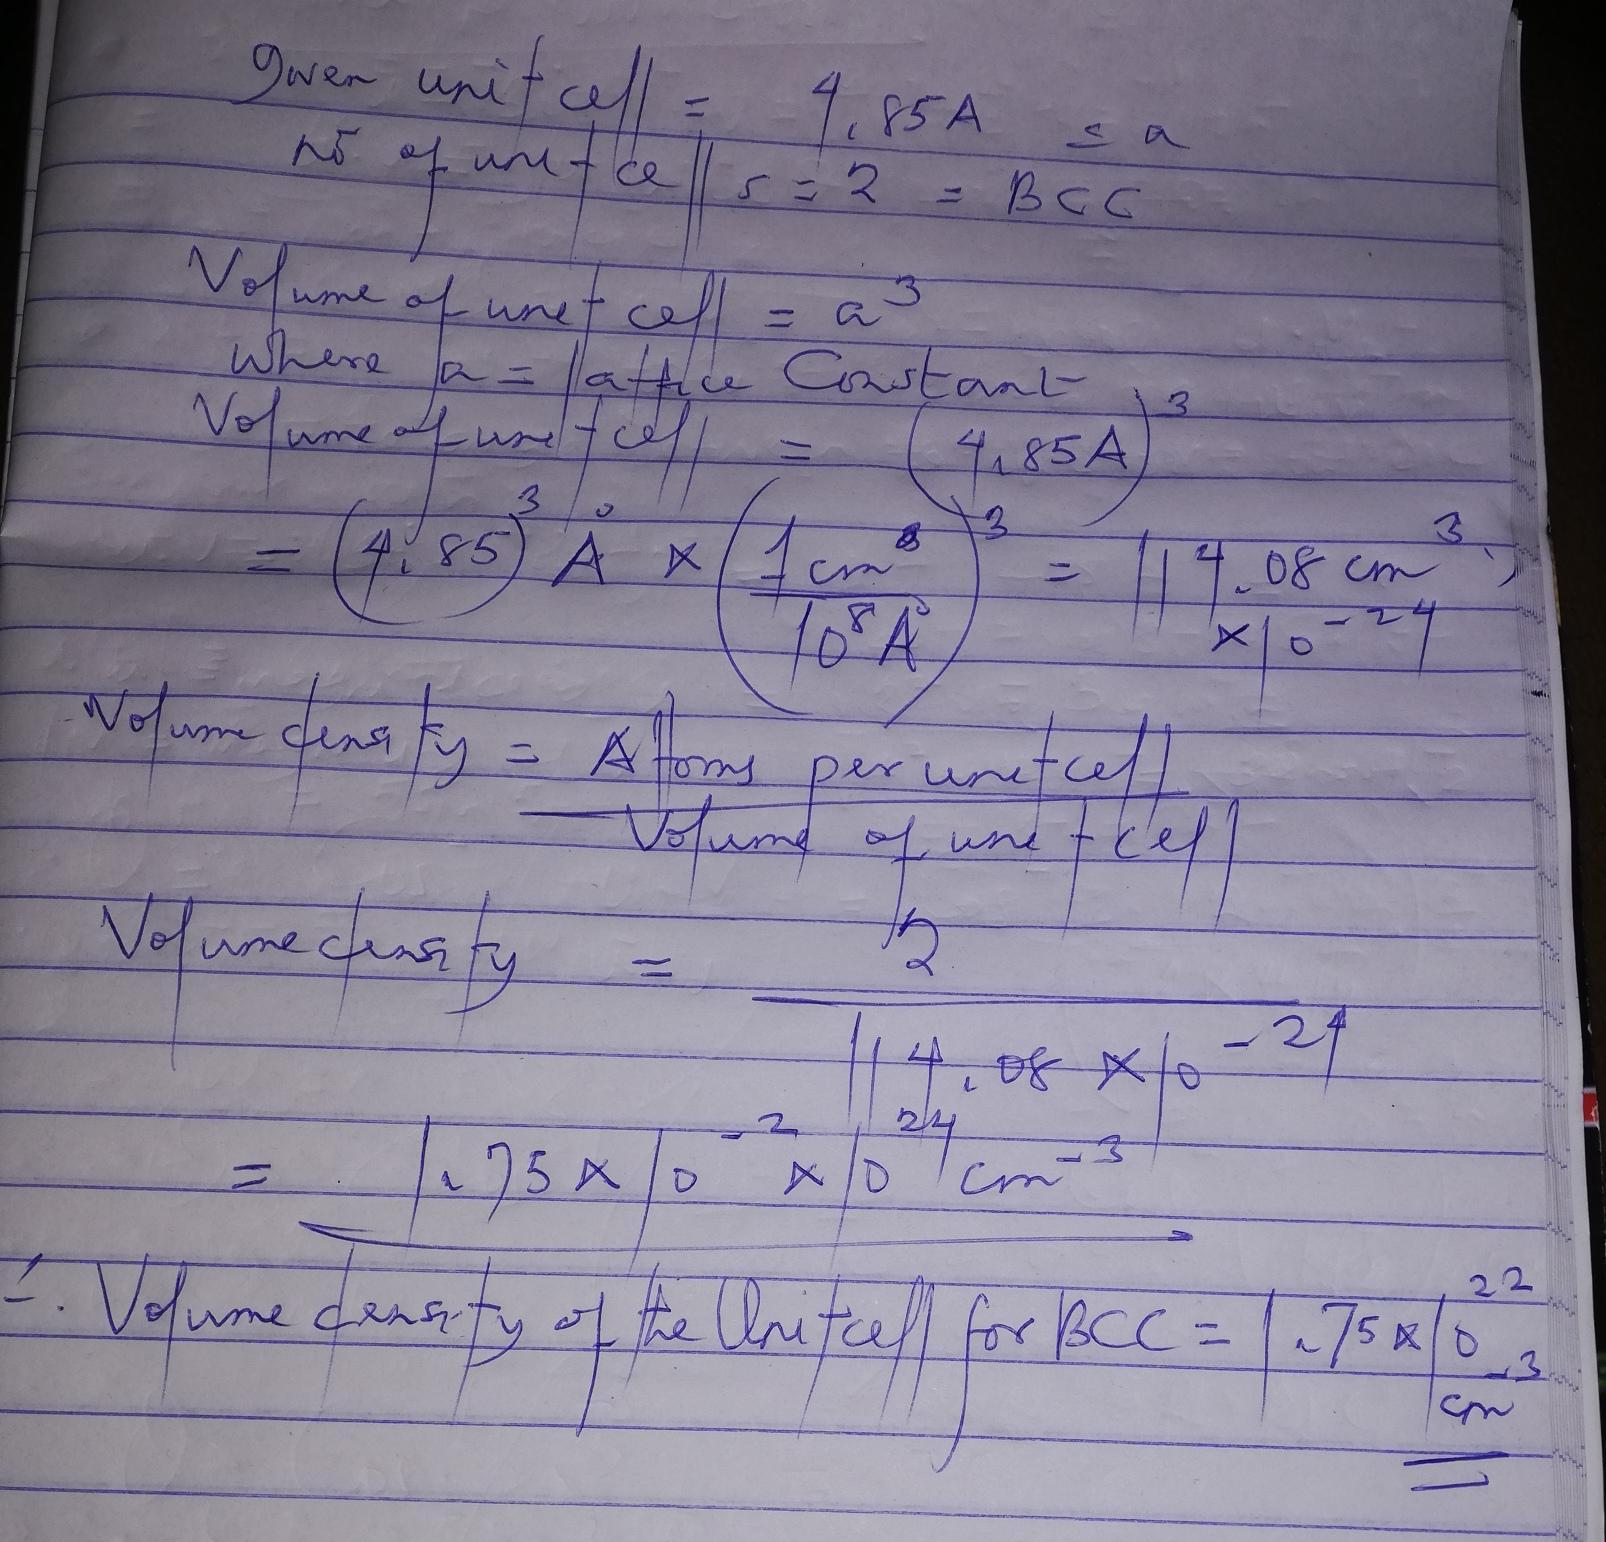 given unit cell = 4.85A = a
no of unit cells = 2 = BCC
Volume of unit cell = a³
where a = lattice Constant
Volume of unit cell = (4.85A)³
= (4.85)³ Å × (1cm³/10⁸Å)³ = 114.08 cm³
×10⁻²⁴
Volume density = Attoms per unit cell
Volume of unit cell
Volume density = 2
114.08 ×10⁻²⁴
= 1.75×10⁻² ×10²⁴ cm⁻³
∴ Volume density of the Unit cell for BCC = 1.75×10²²
cm⁻³